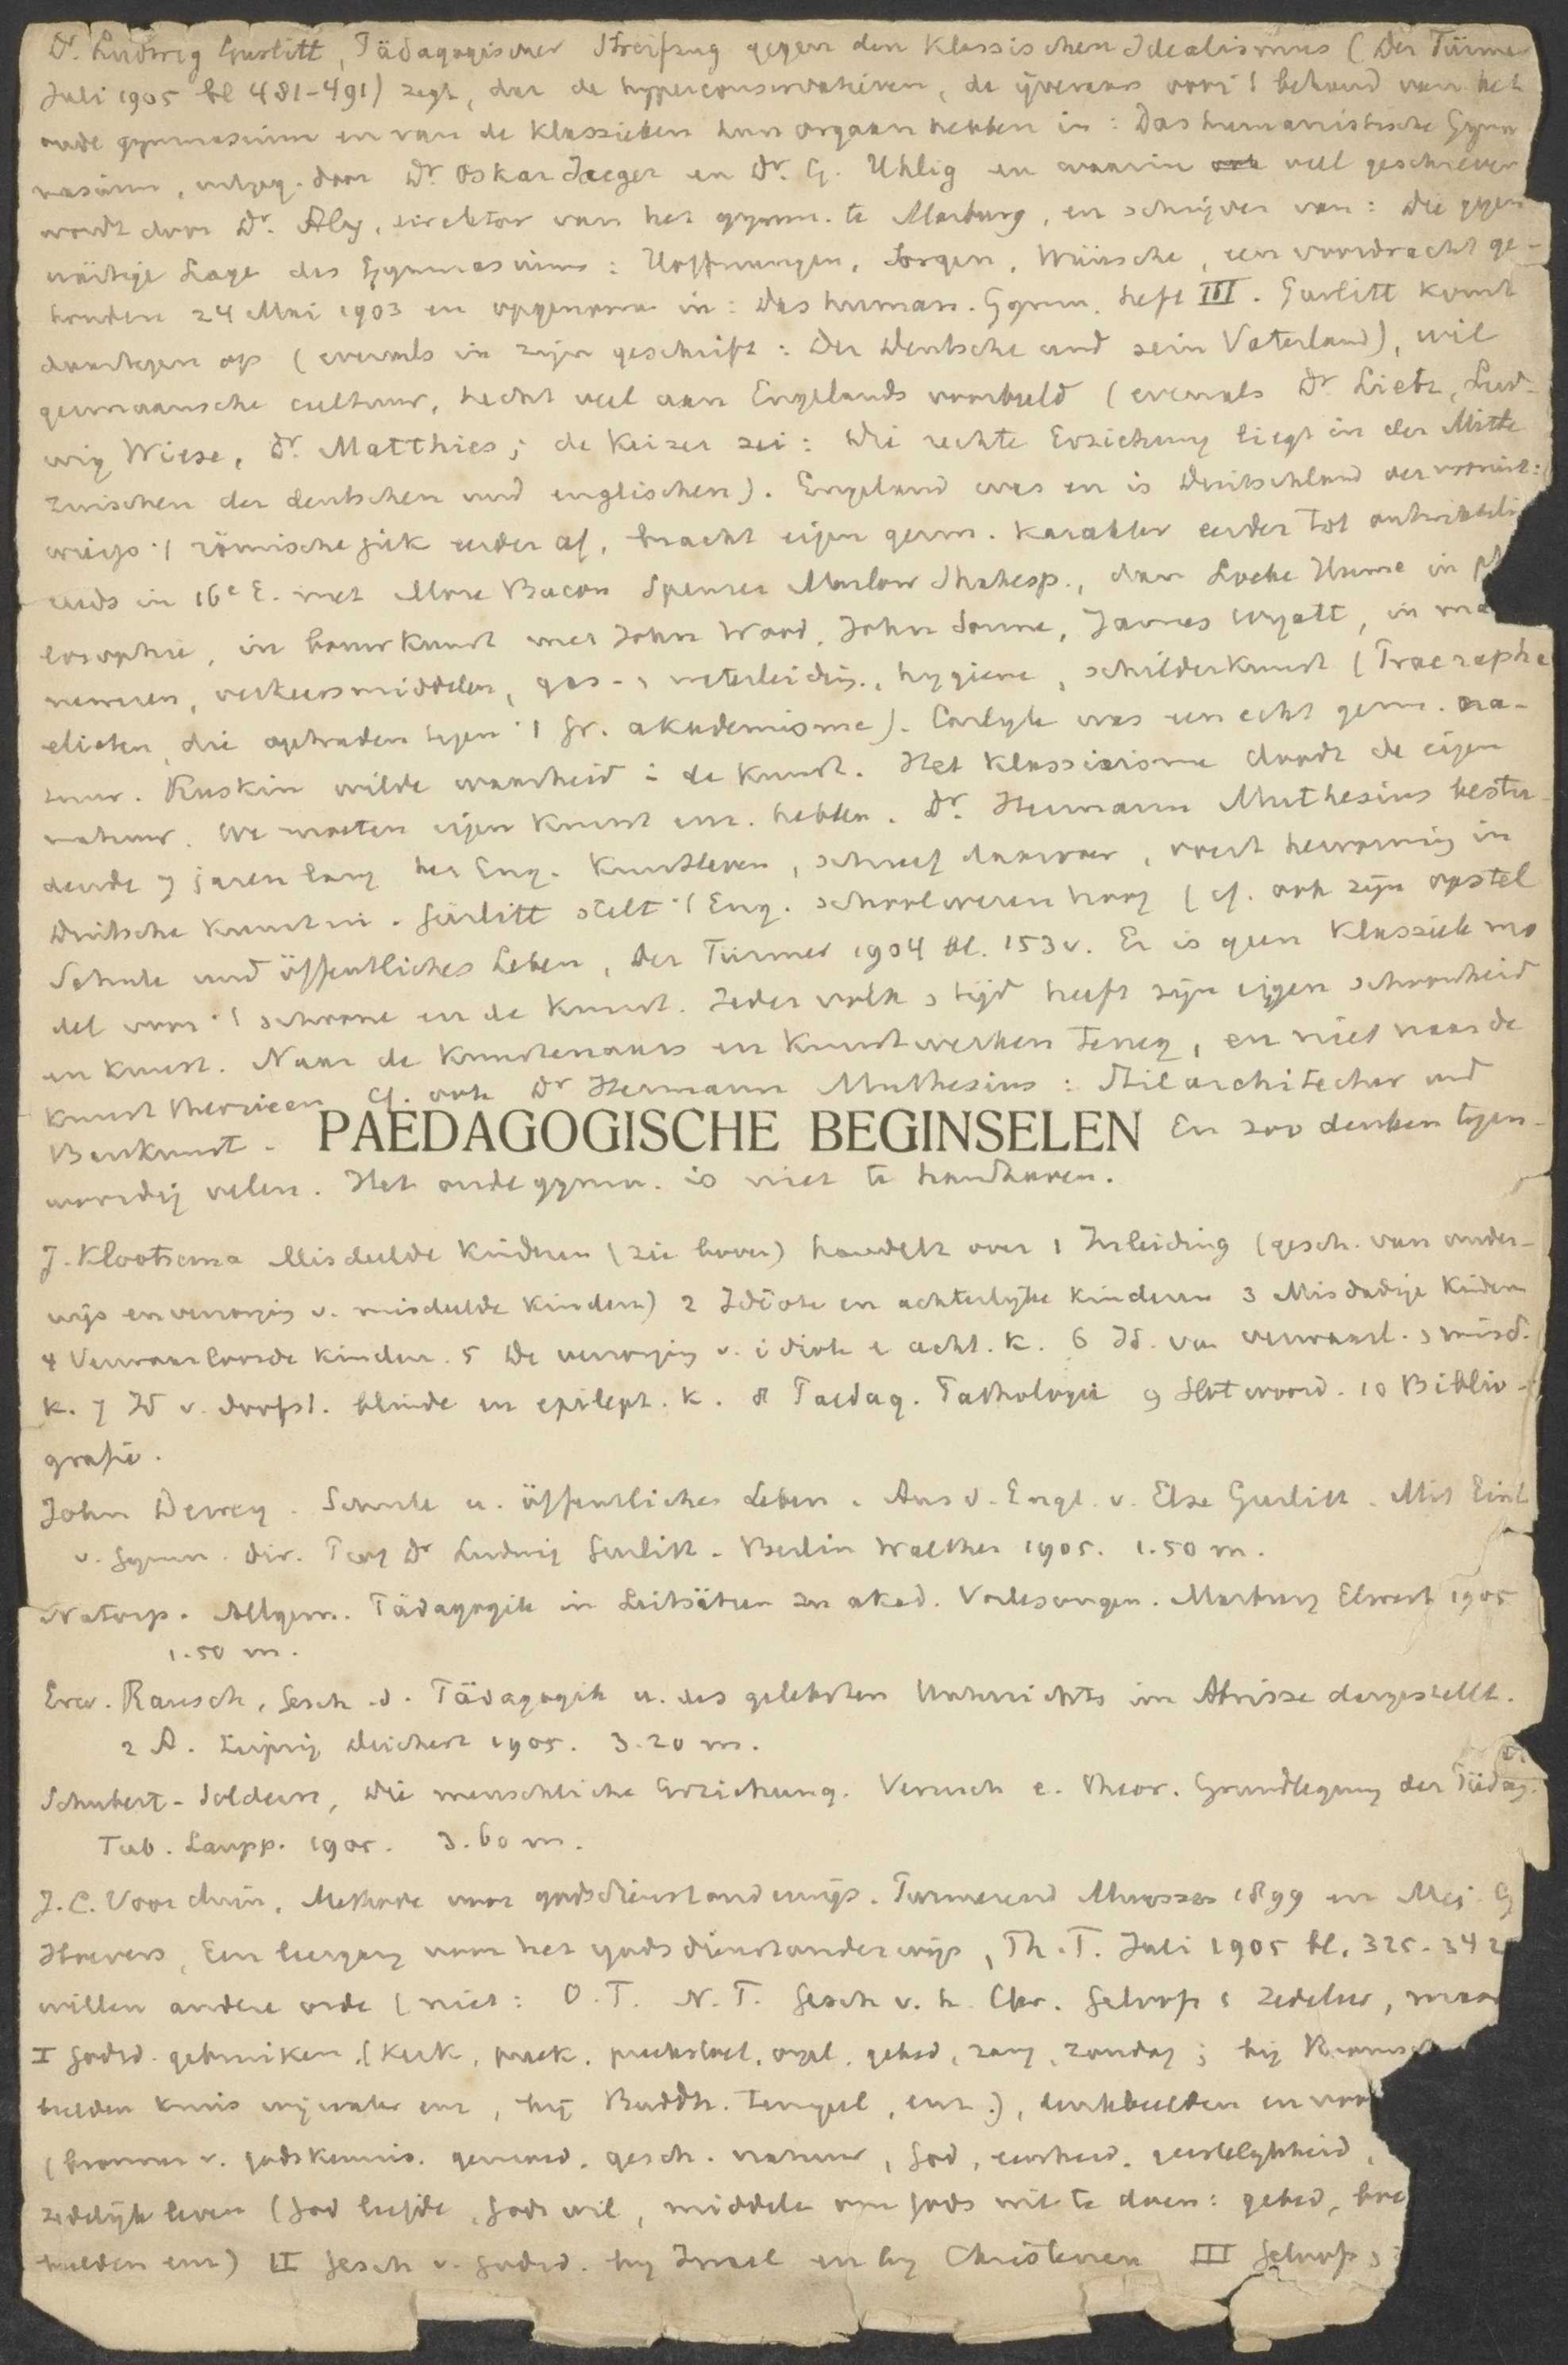 Dr. Ludwig Gurlitt, Pädagogischer Streifzug gegen den klassischen Idealismus (Der Türmer
Juli 1905 bl 481-491) zegt, dat de hyperconservatieven, de ijveraars voor 't behoud van het
oude gymnasium en van de klassieken hun orgaan hebben in: Das humanistische Gym
nasium, uitgeg. door Dr. Oskar Jaeger en Dr. G. Uhlig en waarin veel geschreven
wordt door Dr. Aly, direktor van het gymn. te Marburg, en schrijver van: Die gegen
wärtige Lage des Gymnasiums: Hoffnungen, Sorgen, Wünsche, een voordracht ge-
houden 24 Mai 1903 en opgenomen in: Das human. Gymn. Heft III. Gurlitt komt
daartegen op (evenals in zijn geschrift: Der Deutsche und sein Vaterland), wil
germaansche cultuur, hecht veel aan Engelands voorbeeld (evenals Dr. Lietz, Lud-
wig Wiese, Dr. Matthies; de Keizer zei: Die rechte Erziehung liegt in der Mitte
zwischen der deutschen und englischen). Engeland was en is Duitschland vooruit:
wierp 't römische juk eerder af, bracht eigen germ. karakter eerder tot ontwikkeli
reeds in 16e E. met More Bacon Spenser Marlow Shakesp., dan Locke Hume in
losophie, in bouwkunst met John Wood, John Soane, James Wyatt, in
meubelen, verkeersmiddelen, gas- & waterleiding, hygiene, schilderkunst (Praeraphae
elieten, die optraden tegen 't fr. akademisme). Carlyle was een echt germ. na-
tuur. Ruskin wilde waarheid in de kunst. Het klassicisme doodt de eigen
natuur. We moeten eigen kunst enz. hebben. Dr. Hermann Muthesius bestu-
deerde 7 jaren lang het Eng. kunstleven, schreef daarover, voert hervorming in
Duitsche kunst in. Gurlitt stelt 't Eng. schoolwezen hoog (cf. ook zijn opstel
Schule und öffentliches Leben, Der Türmer 1904 bl. 153v. Er is geen klassiek mo
del voor 't schoone en de kunst. Ieder volk & tijd heeft zijn eigen schoonheid
en kunst. Naar de kunstenaars en kunstwerken terug, en niet naar de
kunsttheorieen cf. ook Dr Hermann Muthesius: Stilarchitectur und
Baukunst. PAEDAGOGISCHE BEGINSELEN En zoo denken tegen-
woordig velen. Het oude gymn. is niet te handhaven.
J. Klootsema Misdeelde Kinderen (zie boven) handelt over 1 Inleiding (gesch. van onder-
wijs en verzorging v. misdeelde kinderen) 2 Idiote en achterlijke kinderen 3 Misdadige kinderen
4 Verwaarloosde kinderen. 5 De verzorging v. idiote e acht. k. 6 Id. van verwaarl. & misd.
k. 7 Id v. doofst. blinde en epilept. k. 8 Paedag. Pathologie 9 Slotwoord. 10 Biblio-
grafie.
John Dewey. Schule u. öffentliches Leben. Aus d. Engl. v. Else Gurlitt. Mit Einl
v. Gymn. Dir. Dr Ludwig Gurlitt. Berlin Walther 1905. 1.50 m.
Natorp. Allgem. Pädagogik in Leitsätzen zu akad. Vorlesungen. Marburg Elwert 1905
1.50 m.
Erw. Rausch, Gesch. d. Pädagogik u. des gelehrten Unterrichts im Abrisse dargestellt.
2 A. Leipzig Deichert 1905. 3.20 m.
Schubert-Soldern, Die menschliche Erziehung. Versuch e. theor. Grundlegung der Pädag.
Tub. Laupp. 1905. 3.60 m.
J.C. Voorduin, Methode voor godsdienstonderwijs. Purmerend Muusses 1899 en Mej. G
Hoevers, Een leergang voor het godsdienstonderwijs, Th. T. Juli 1905 bl. 325-342
willen andere orde (niet: O.T. N.T. Gesch v. h. Chr. Geloofs & Zedeleer, maar
I Godsd. gebruiken (Kerk, preek, preekstoel, orgel, gebed, zang, zondag; bij
beelden kruis wijwater enz, bij Buddh. tempel, enz.), denkbeelden en
(bronnen v. godskennis. gemoed, gesch. natuur, God, eenheid, geestelijkheid,
zedelijk leven (God liefde, Gods wil, middelen om Gods wil te doen: gebed,
beelden enz) II Gesch v. Godsd. bij Israel en bij Christenen III Geloofs &